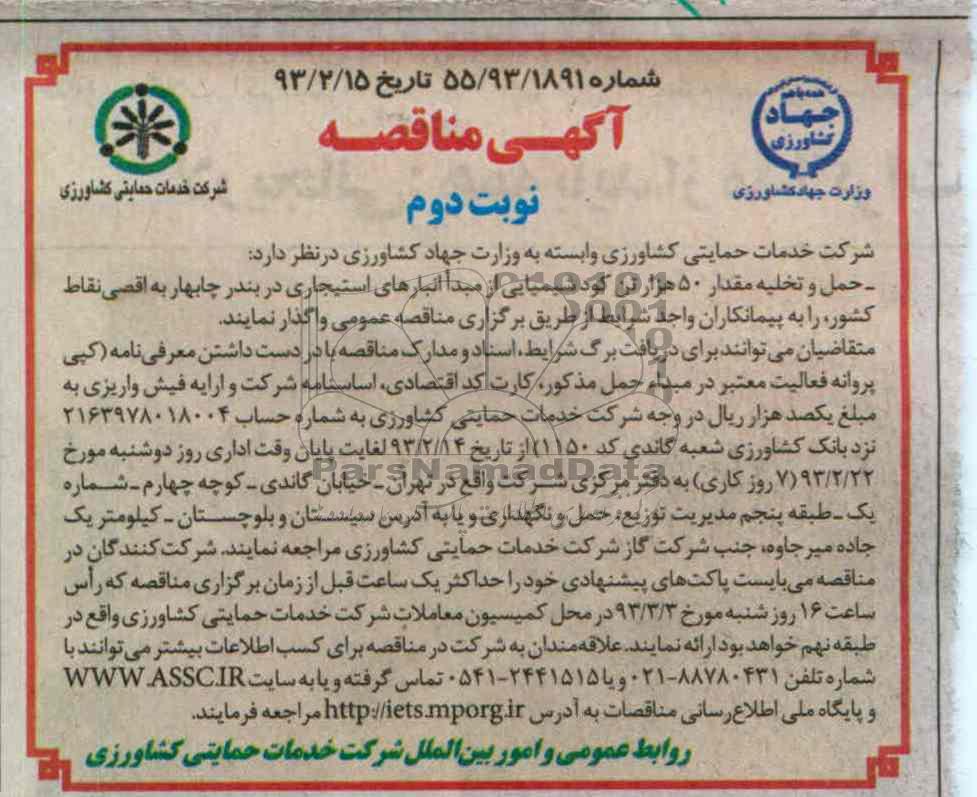 شماره ۵۵/۹۳/۱۸۹۱ تاریخ ۹۳/۲/۱۵
آگهی مناقصه
نوبت دوم
همه با هم
جهاد
کشاورزی
وزارت جهادکشاورزی
شرکت خدمات حمایتی کشاورزی
شرکت خدمات حمایتی کشاورزی وابسته به وزارت جهاد کشاورزی درنظر دارد:
ـ حمل و تخلیه مقدار ۵۰ هزار تن کود شیمیایی از مبدأ انبارهای استیجاری در بندر چابهار به اقصی نقاط
کشور، را به پیمانکاران واجد شرایط از طریق برگزاری مناقصه عمومی واگذار نمایند.
متقاضیان می‌توانند برای دریافت برگ شرایط، اسناد و مدارک مناقصه با در دست داشتن معرفی‌نامه (کپی
پروانه فعالیت معتبر در مبداء حمل مذکور، کارت کد اقتصادی، اساسنامه شرکت و ارایه فیش واریزی به
مبلغ یکصد هزار ریال در وجه شرکت خدمات حمایتی کشاورزی به شماره حساب ۲۱۶۳۹۷۸۰۱۸۰۰۴
نزد بانک کشاورزی شعبه گاندی کد ۱۱۵۰) از تاریخ ۹۳/۲/۱۴ لغایت پایان وقت اداری روز دوشنبه مورخ
۹۳/۲/۲۲ (۷ روز کاری) به دفتر مرکزی شرکت واقع در تهران ـ خیابان گاندی ـ کوچه چهارم ـ شماره
یک ـ طبقه پنجم مدیریت توزیع، حمل و نگهداری و یا به آدرس سیستان و بلوچستان ـ کیلومتر یک
جاده میرجاوه، جنب شرکت گاز شرکت خدمات حمایتی کشاورزی مراجعه نمایند. شرکت‌کنندگان در
مناقصه می‌بایست پاکت‌های پیشنهادی خود را حداکثر یک ساعت قبل از زمان برگزاری مناقصه که رأس
ساعت ۱۶ روز شنبه مورخ ۹۳/۳/۳ در محل کمیسیون معاملات شرکت خدمات حمایتی کشاورزی واقع در
طبقه نهم خواهد بود ارائه نمایند. علاقه‌مندان به شرکت در مناقصه برای کسب اطلاعات بیشتر می‌توانند با
شماره تلفن ۸۸۷۸۰۴۳۱-۰۲۱ و یا ۲۴۴۱۵۱۵-۰۵۴۱ تماس گرفته و یا به سایت WWW.ASSC.IR
و پایگاه ملی اطلاع‌رسانی مناقصات به آدرس http://iets.mporg.ir مراجعه فرمایند.
روابط عمومی و امور بین‌الملل شرکت خدمات حمایتی کشاورزی
ParsNamadData